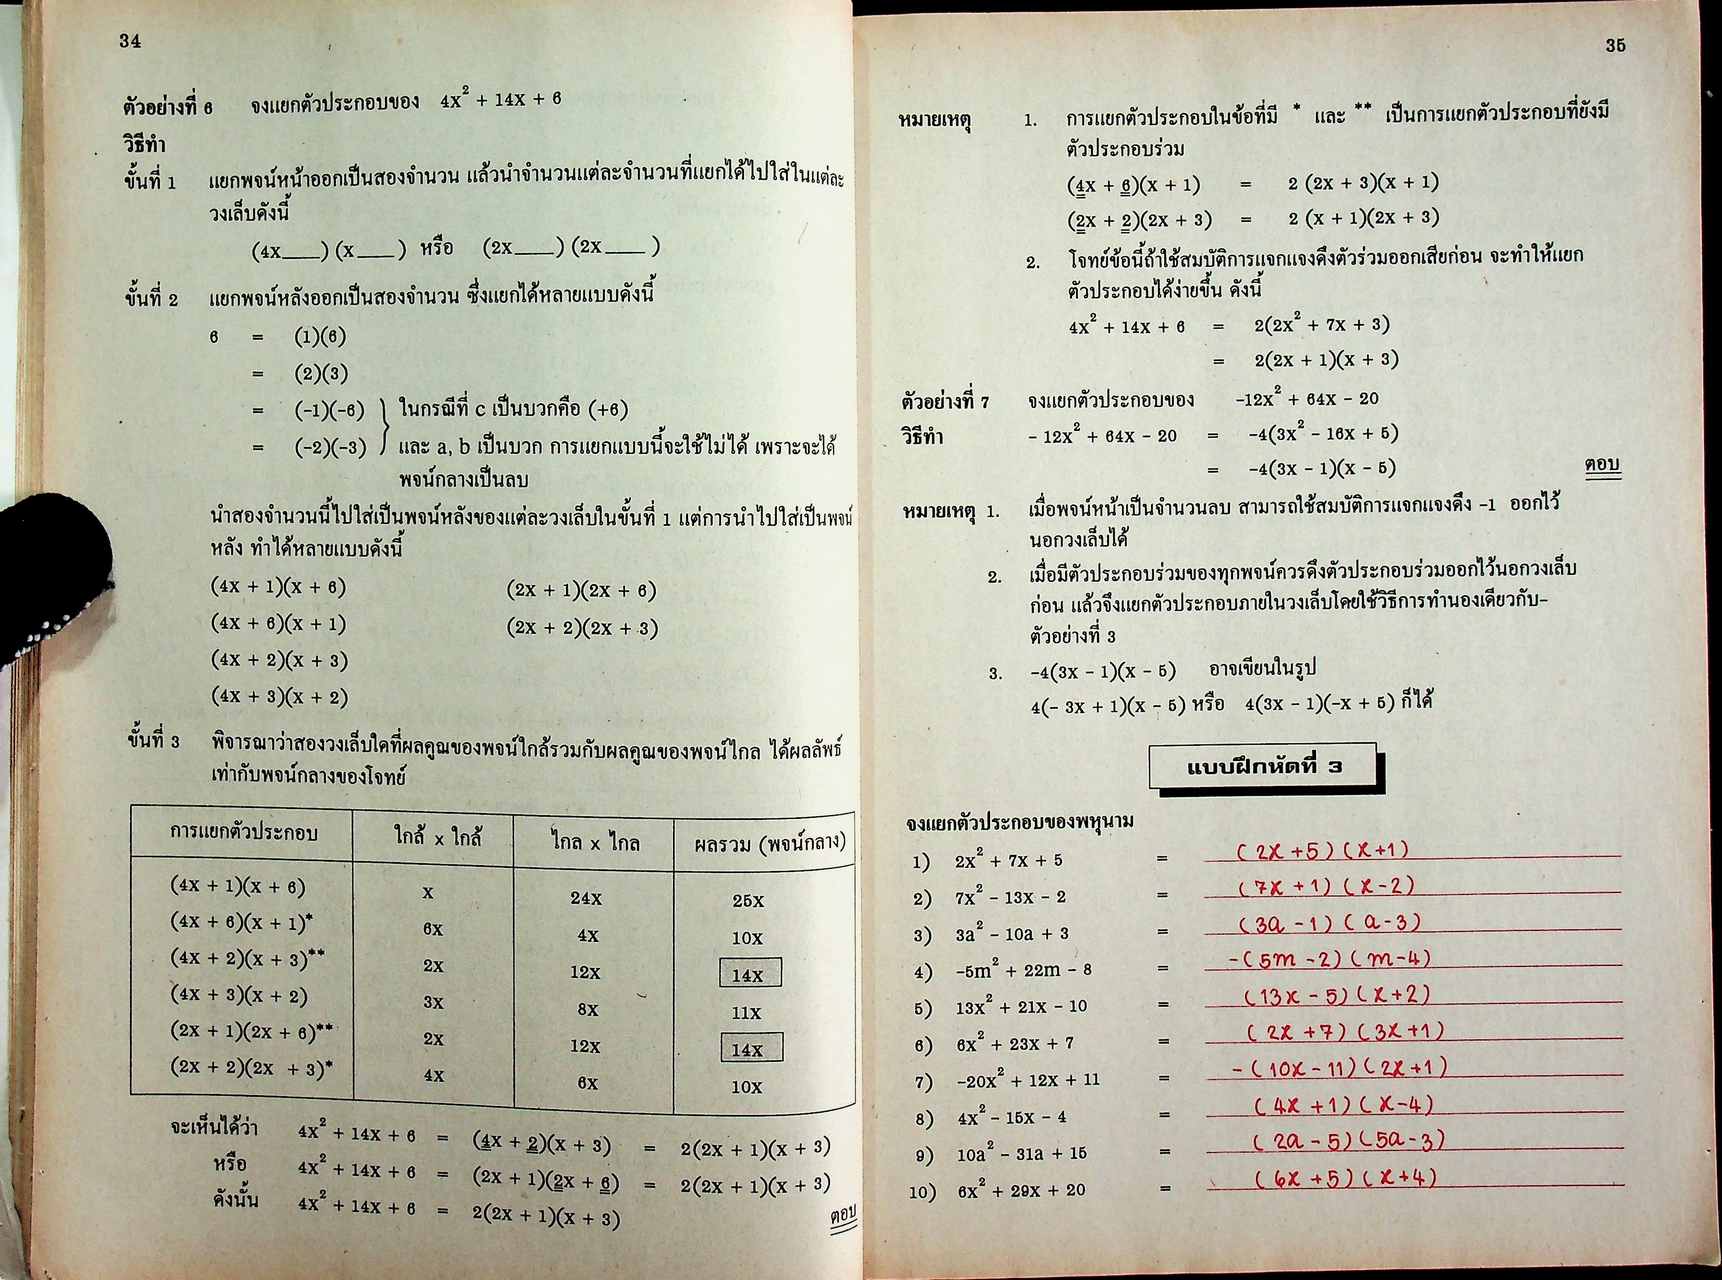 34
ตัวอย่างที่ 6 จงแยกตัวประกอบของ 4x² + 14x + 6
วิธีทำ
ขั้นที่ 1 แยกพจน์หน้าออกเป็นสองจำนวน แล้วนำจำนวนแต่ละจำนวนที่แยกได้ไปใส่ในแต่ละ
วงเล็บดังนี้
(4x____) (x____) หรือ (2x____) (2x____)
ขั้นที่ 2 แยกพจน์หลังออกเป็นสองจำนวน ซึ่งแยกได้หลายแบบดังนี้
6 = (1)(6)
= (2)(3)
= (-1)(-6) } ในกรณีที่ c เป็นบวกคือ (+6)
= (-2)(-3) และ a, b เป็นบวก การแยกแบบนี้จะใช้ไม่ได้ เพราะจะได้
พจน์กลางเป็นลบ
นำสองจำนวนนี้ไปใส่เป็นพจน์หลังของแต่ละวงเล็บในขั้นที่ 1 แต่การนำไปใส่เป็นพจน์
หลัง ทำได้หลายแบบดังนี้
(4x + 1)(x + 6) (2x + 1)(2x + 6)
(4x + 6)(x + 1) (2x + 2)(2x + 3)
(4x + 2)(x + 3)
(4x + 3)(x + 2)
ขั้นที่ 3 พิจารณาว่าสองวงเล็บใดที่ผลคูณของพจน์ใกล้รวมกับผลคูณของพจน์ไกล ได้ผลลัพธ์
เท่ากับพจน์กลางของโจทย์
การแยกตัวประกอบ ใกล้ x ใกล้ ไกล x ไกล ผลรวม (พจน์กลาง)
(4x + 1)(x + 6) x 24x 25x
(4x + 6)(x + 1)* 6x 4x 10x
(4x + 2)(x + 3)** 2x 12x 14x
(4x + 3)(x + 2) 3x 8x 11x
(2x + 1)(2x + 6)** 2x 12x 14x
(2x + 2)(2x + 3)* 4x 6x 10x
จะเห็นได้ว่า 4x² + 14x + 6 = (4x + 2)(x + 3) = 2(2x + 1)(x + 3)
หรือ 4x² + 14x + 6 = (2x + 1)(2x + 6) = 2(2x + 1)(x + 3)
ดังนั้น 4x² + 14x + 6 = 2(2x + 1)(x + 3) ตอบ
35
หมายเหตุ 1. การแยกตัวประกอบในข้อที่มี * และ ** เป็นการแยกตัวประกอบที่ยังมี
ตัวประกอบร่วม
(4x + 6)(x + 1) = 2 (2x + 3)(x + 1)
(2x + 2)(2x + 3) = 2 (x + 1)(2x + 3)
2. โจทย์ข้อนี้ถ้าใช้สมบัติการแจกแจงดึงตัวร่วมออกเสียก่อน จะทำให้แยก
ตัวประกอบได้ง่ายขึ้น ดังนี้
4x² + 14x + 6 = 2(2x² + 7x + 3)
= 2(2x + 1)(x + 3)
ตัวอย่างที่ 7 จงแยกตัวประกอบของ -12x² + 64x - 20
วิธีทำ - 12x² + 64x - 20 = -4(3x² - 16x + 5)
= -4(3x - 1)(x - 5) ตอบ
หมายเหตุ 1. เมื่อพจน์หน้าเป็นจำนวนลบ สามารถใช้สมบัติการแจกแจงดึง -1 ออกไว้
นอกวงเล็บได้
2. เมื่อมีตัวประกอบร่วมของทุกพจน์ควรดึงตัวประกอบร่วมออกไว้นอกวงเล็บ
ก่อน แล้วจึงแยกตัวประกอบภายในวงเล็บโดยใช้วิธีการทำนองเดียวกับ-
ตัวอย่างที่ 3
3. -4(3x - 1)(x - 5) อาจเขียนในรูป
4(- 3x + 1)(x - 5) หรือ 4(3x - 1)(-x + 5) ก็ได้
แบบฝึกหัดที่ 3
จงแยกตัวประกอบของพหุนาม
1) 2x² + 7x + 5 = (2x +5) (x+1)
2) 7x² - 13x - 2 = (7x +1) (x-2)
3) 3a² - 10a + 3 = (3a -1) (a-3)
4) -5m² + 22m - 8 = -(5m -2) (m-4)
5) 13x² + 21x - 10 = (13x -5) (x+2)
6) 6x² + 23x + 7 = (2x +7) (3x+1)
7) -20x² + 12x + 11 = -(10x -11) (2x+1)
8) 4x² - 15x - 4 = (4x +1) (x-4)
9) 10a² - 31a + 15 = (2a -5) (5a-3)
10) 6x² + 29x + 20 = (6x +5) (x+4)